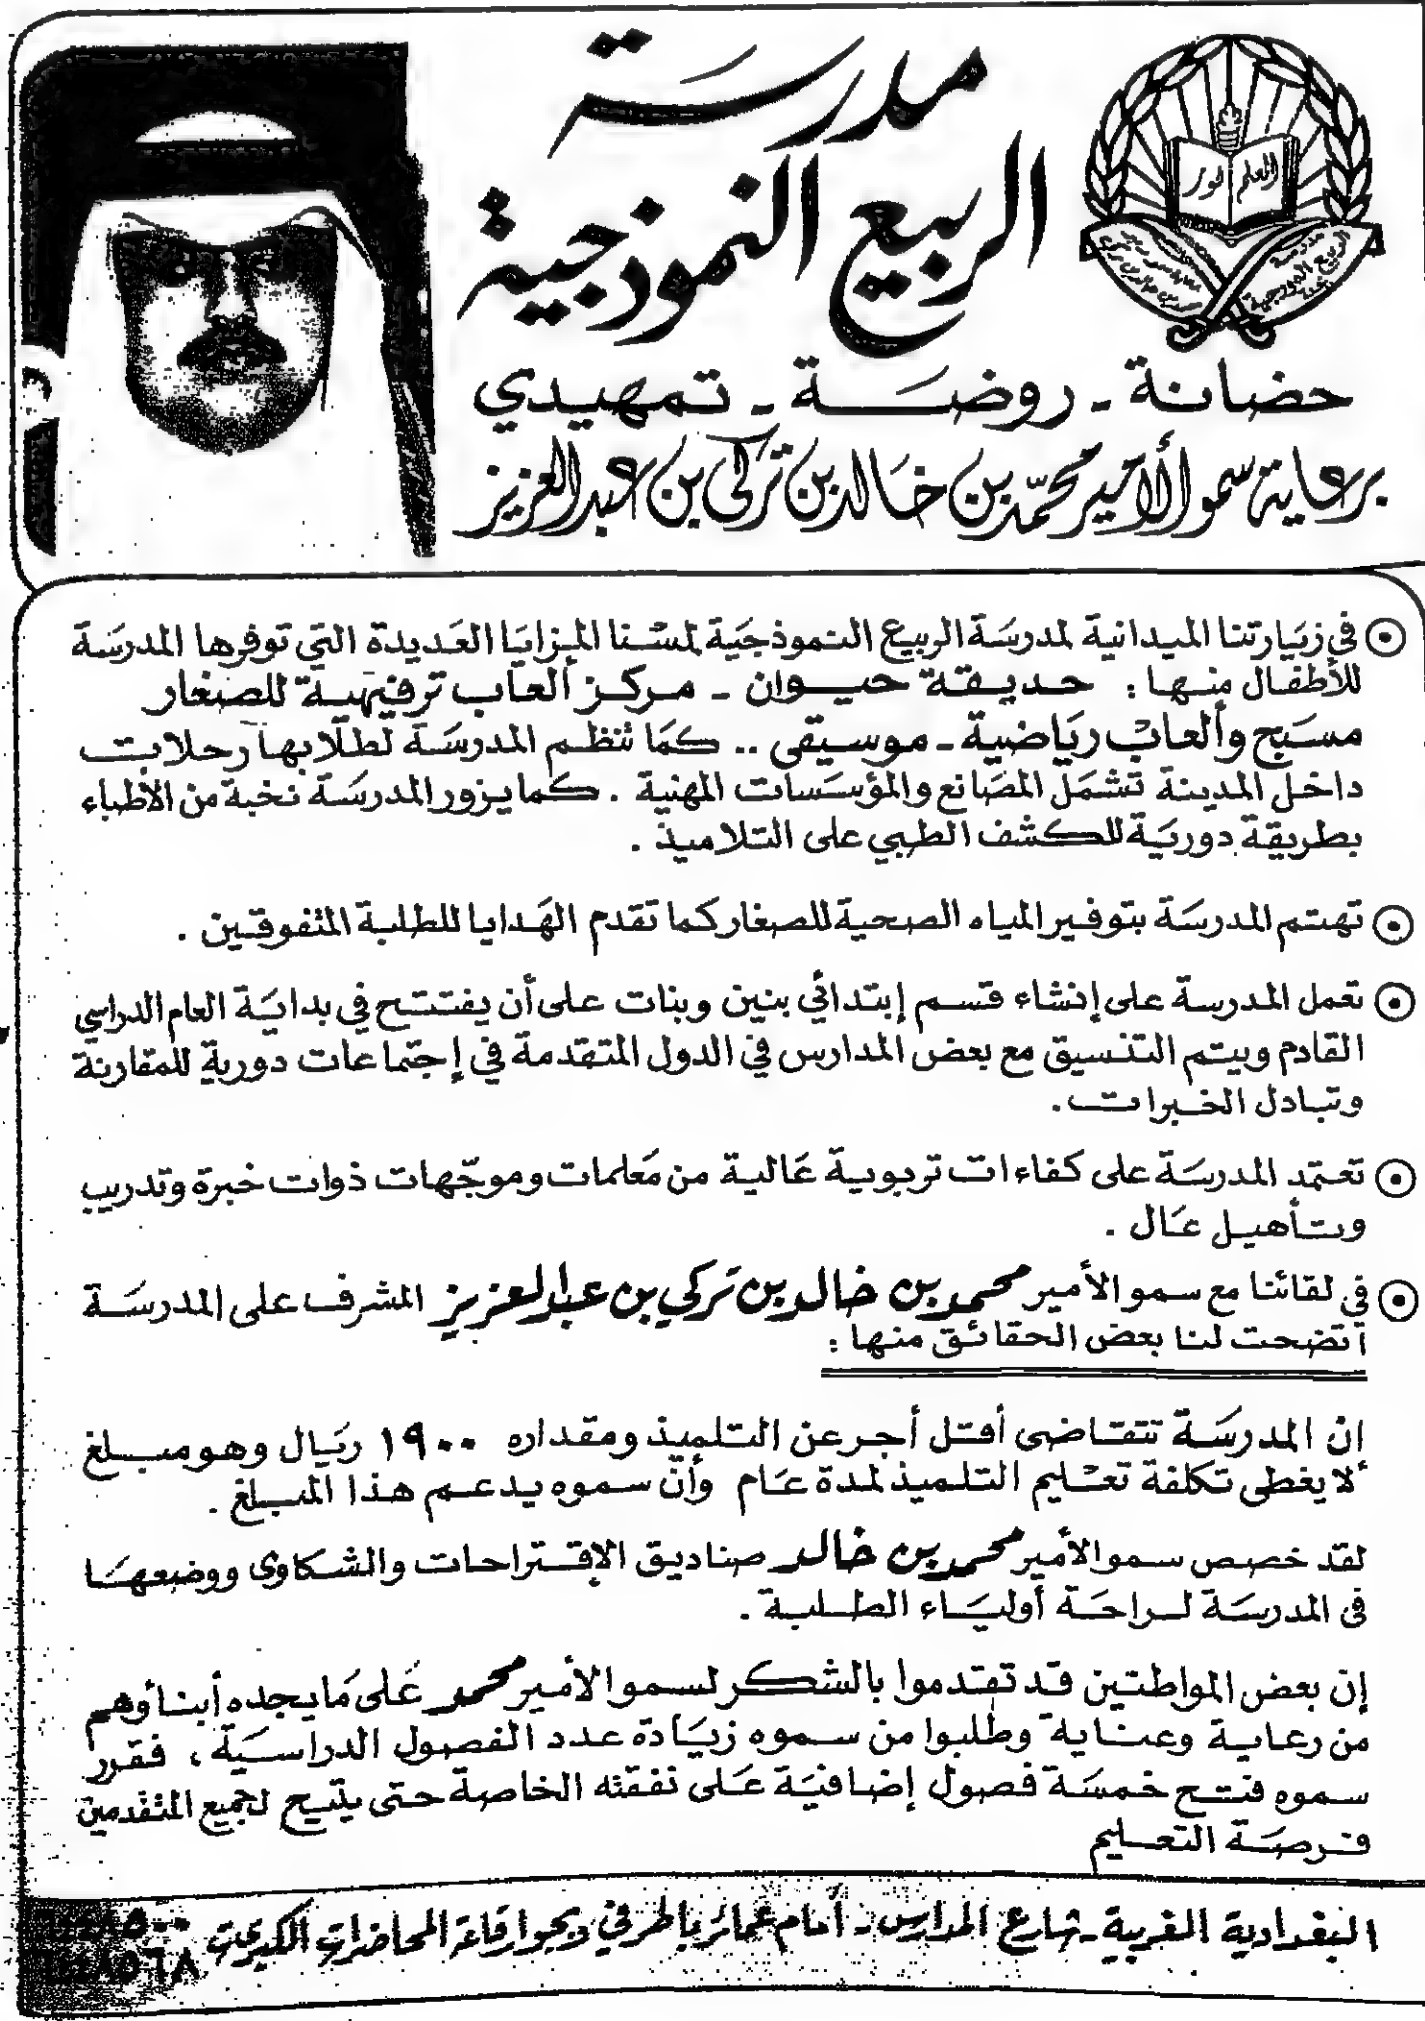 مدرسة
الربيع النموذجية
حضانة - روضة - تمهيدي
برعاية سمو الأمير محمد بن خالد بن تركي بن عبد العزيز
العلم نور
مدرسة الربيع النموذجية
في زيارتنا الميدانية لمدرسة الربيع النموذجية لمسنا المزايا العديدة التي توفرها المدرسة
للأطفال منها : حديقة حيوان - مركز ألعاب ترفيهية للصغار
مسبح وألعاب رياضية - موسيقى .. كما تنظم المدرسة لطلابها رحلات
داخل المدينة تشمل المصانع والمؤسسات المهنية . كما يزور المدرسة نخبة من الأطباء
بطريقة دورية للكشف الطبي على التلاميذ .
تهتم المدرسة بتوفير المياه الصحية للصغار كما تقدم الهدايا للطلبة المتفوقين .
تعمل المدرسة على إنشاء قسم إبتدائي بنين وبنات على أن يفتتح في بداية العام الدراسي
القادم ويتم التنسيق مع بعض المدارس في الدول المتقدمة في إجتماعات دورية للمقارنة
وتبادل الخبرات .
تعتمد المدرسة على كفاءات تربوية عالية من معلمات وموجّهات ذوات خبرة وتدريب
وتأهيل عال .
في لقائنا مع سمو الأمير محمد بن خالد بن تركي بن عبد العزيز المشرف على المدرسة
اتضحت لنا بعض الحقائق منها :
ان المدرسة تتقاضى أقل أجر عن التلميذ ومقداره ١٩٠٠ ريال وهو مبلغ
لا يغطى تكلفة تعليم التلميذ لمدة عام وأن سموه يدعم هذا المبلغ .
لقد خصص سمو الأمير محمد بن خالد صناديق الإقتراحات والشكاوى ووضعها
فى المدرسة لراحة أولياء الطلبة .
إن بعض المواطنين قد تقدموا بالشكر لسمو الأمير محمد على ما يجده أبناؤهم
من رعاية وعناية وطلبوا من سموه زيادة عدد الفصول الدراسية ، فقرر
سموه فتح خمسة فصول إضافية على نفقته الخاصة حتى يتيح لجميع المتقدمين
فرصة التعليم
البغدادية الغربية - شارع المدارس - أمام عمائر باطرفي وبجوار قاعة المحاضرات الكبرى